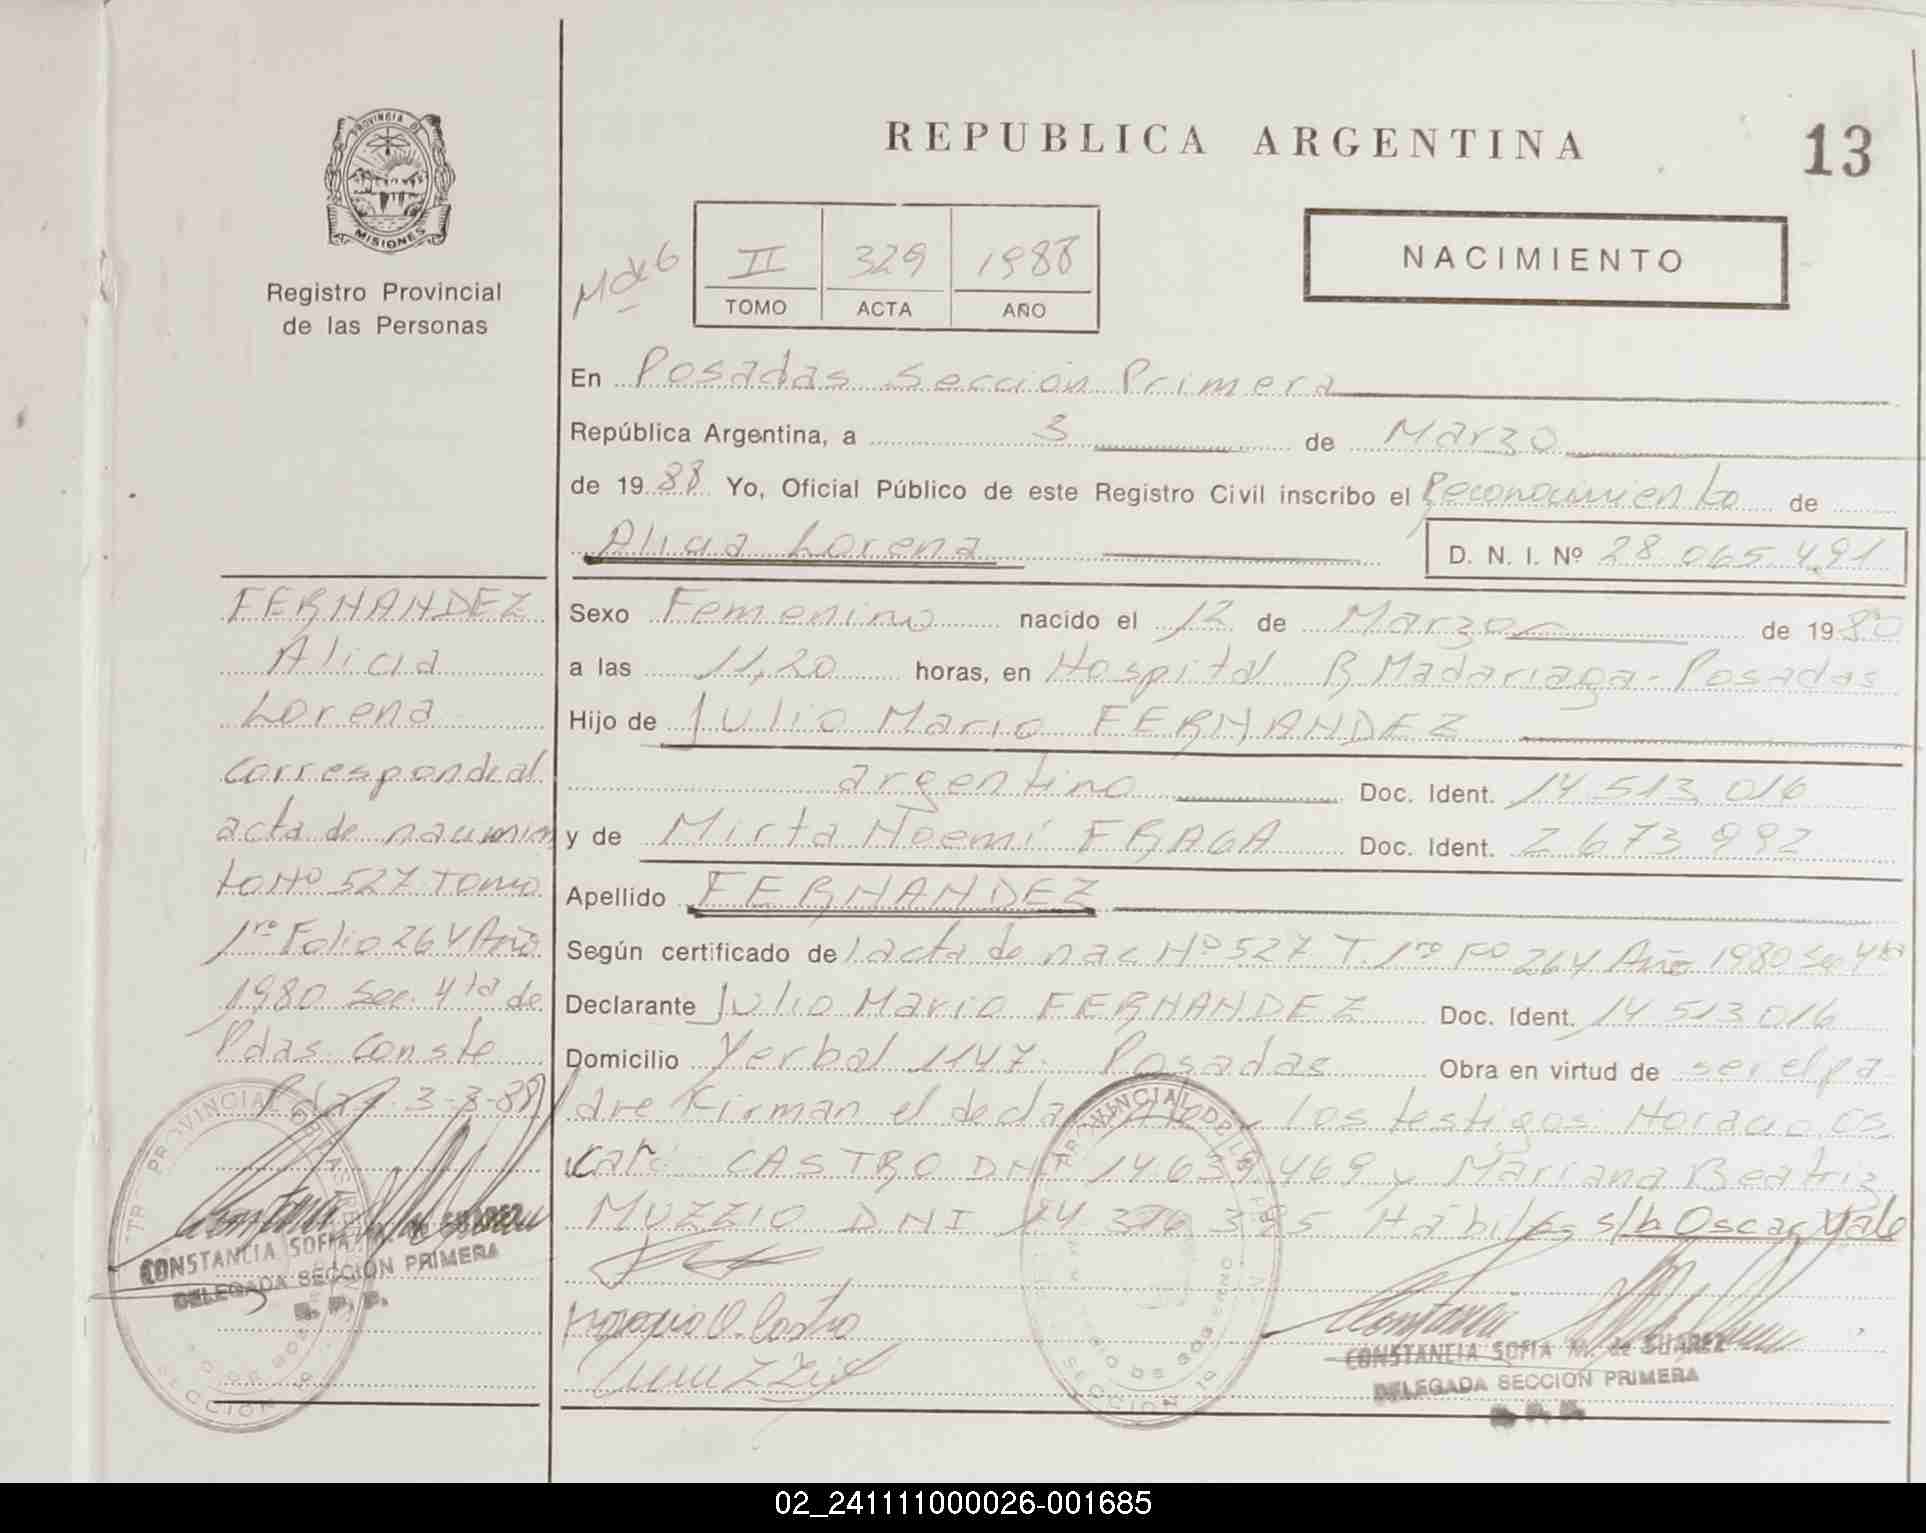 PROVINCIA DE
MISIONES
Registro Provincial
de las Personas
FERNANDEZ
Alicia
Lorena
corresponde al
acta de nacimien
to Nº 527 Tomo
1ro Folio 264 Año
1980 Sec. 4ta de
Pdas. Conste
Pdas. 3-3-88
CONSTANCIA SOFIA M. de SUAREZ
DELEGADA SECCION PRIMERA
R. P. P.
REPUBLICA ARGENTINA
13
II 329 1988
TOMO ACTA AÑO
NACIMIENTO
En Posadas Sección Primera
República Argentina, a 3 de Marzo
de 1988 Yo, Oficial Público de este Registro Civil inscribo el Reconocimiento de
Alicia Lorena D. N. I. Nº 28 065 491
Sexo Femenino nacido el 12 de Marzo de 1980
a las 11,20 horas, en Hospital R Madariaga - Posadas
Hijo de Julio Mario FERNANDEZ
argentino Doc. Ident. 14 513 016
y de Mirta Noemí FRAGA Doc. Ident. 2 673 992
Apellido FERNANDEZ
Según certificado de l acta de nac Nº 527 T. 1ro Fº 264 Año 1980 Sec 4ta
Declarante Julio Mario FERNANDEZ Doc. Ident. 14 513 016
Domicilio Yerbal 1147. Posadas Obra en virtud de ser el pa
dre Firman el declarante y los testigos: Horacio Os
car CASTRO DNI 14.639.469 y Mariana Beatriz
MUZZIO DNI 14 376 385 Hábiles s/b Oscar Vale
Horacio O. Castro
CONSTANCIA SOFIA M. de SUAREZ
DELEGADA SECCION PRIMERA
R. P. P.
02_241111000026-001685